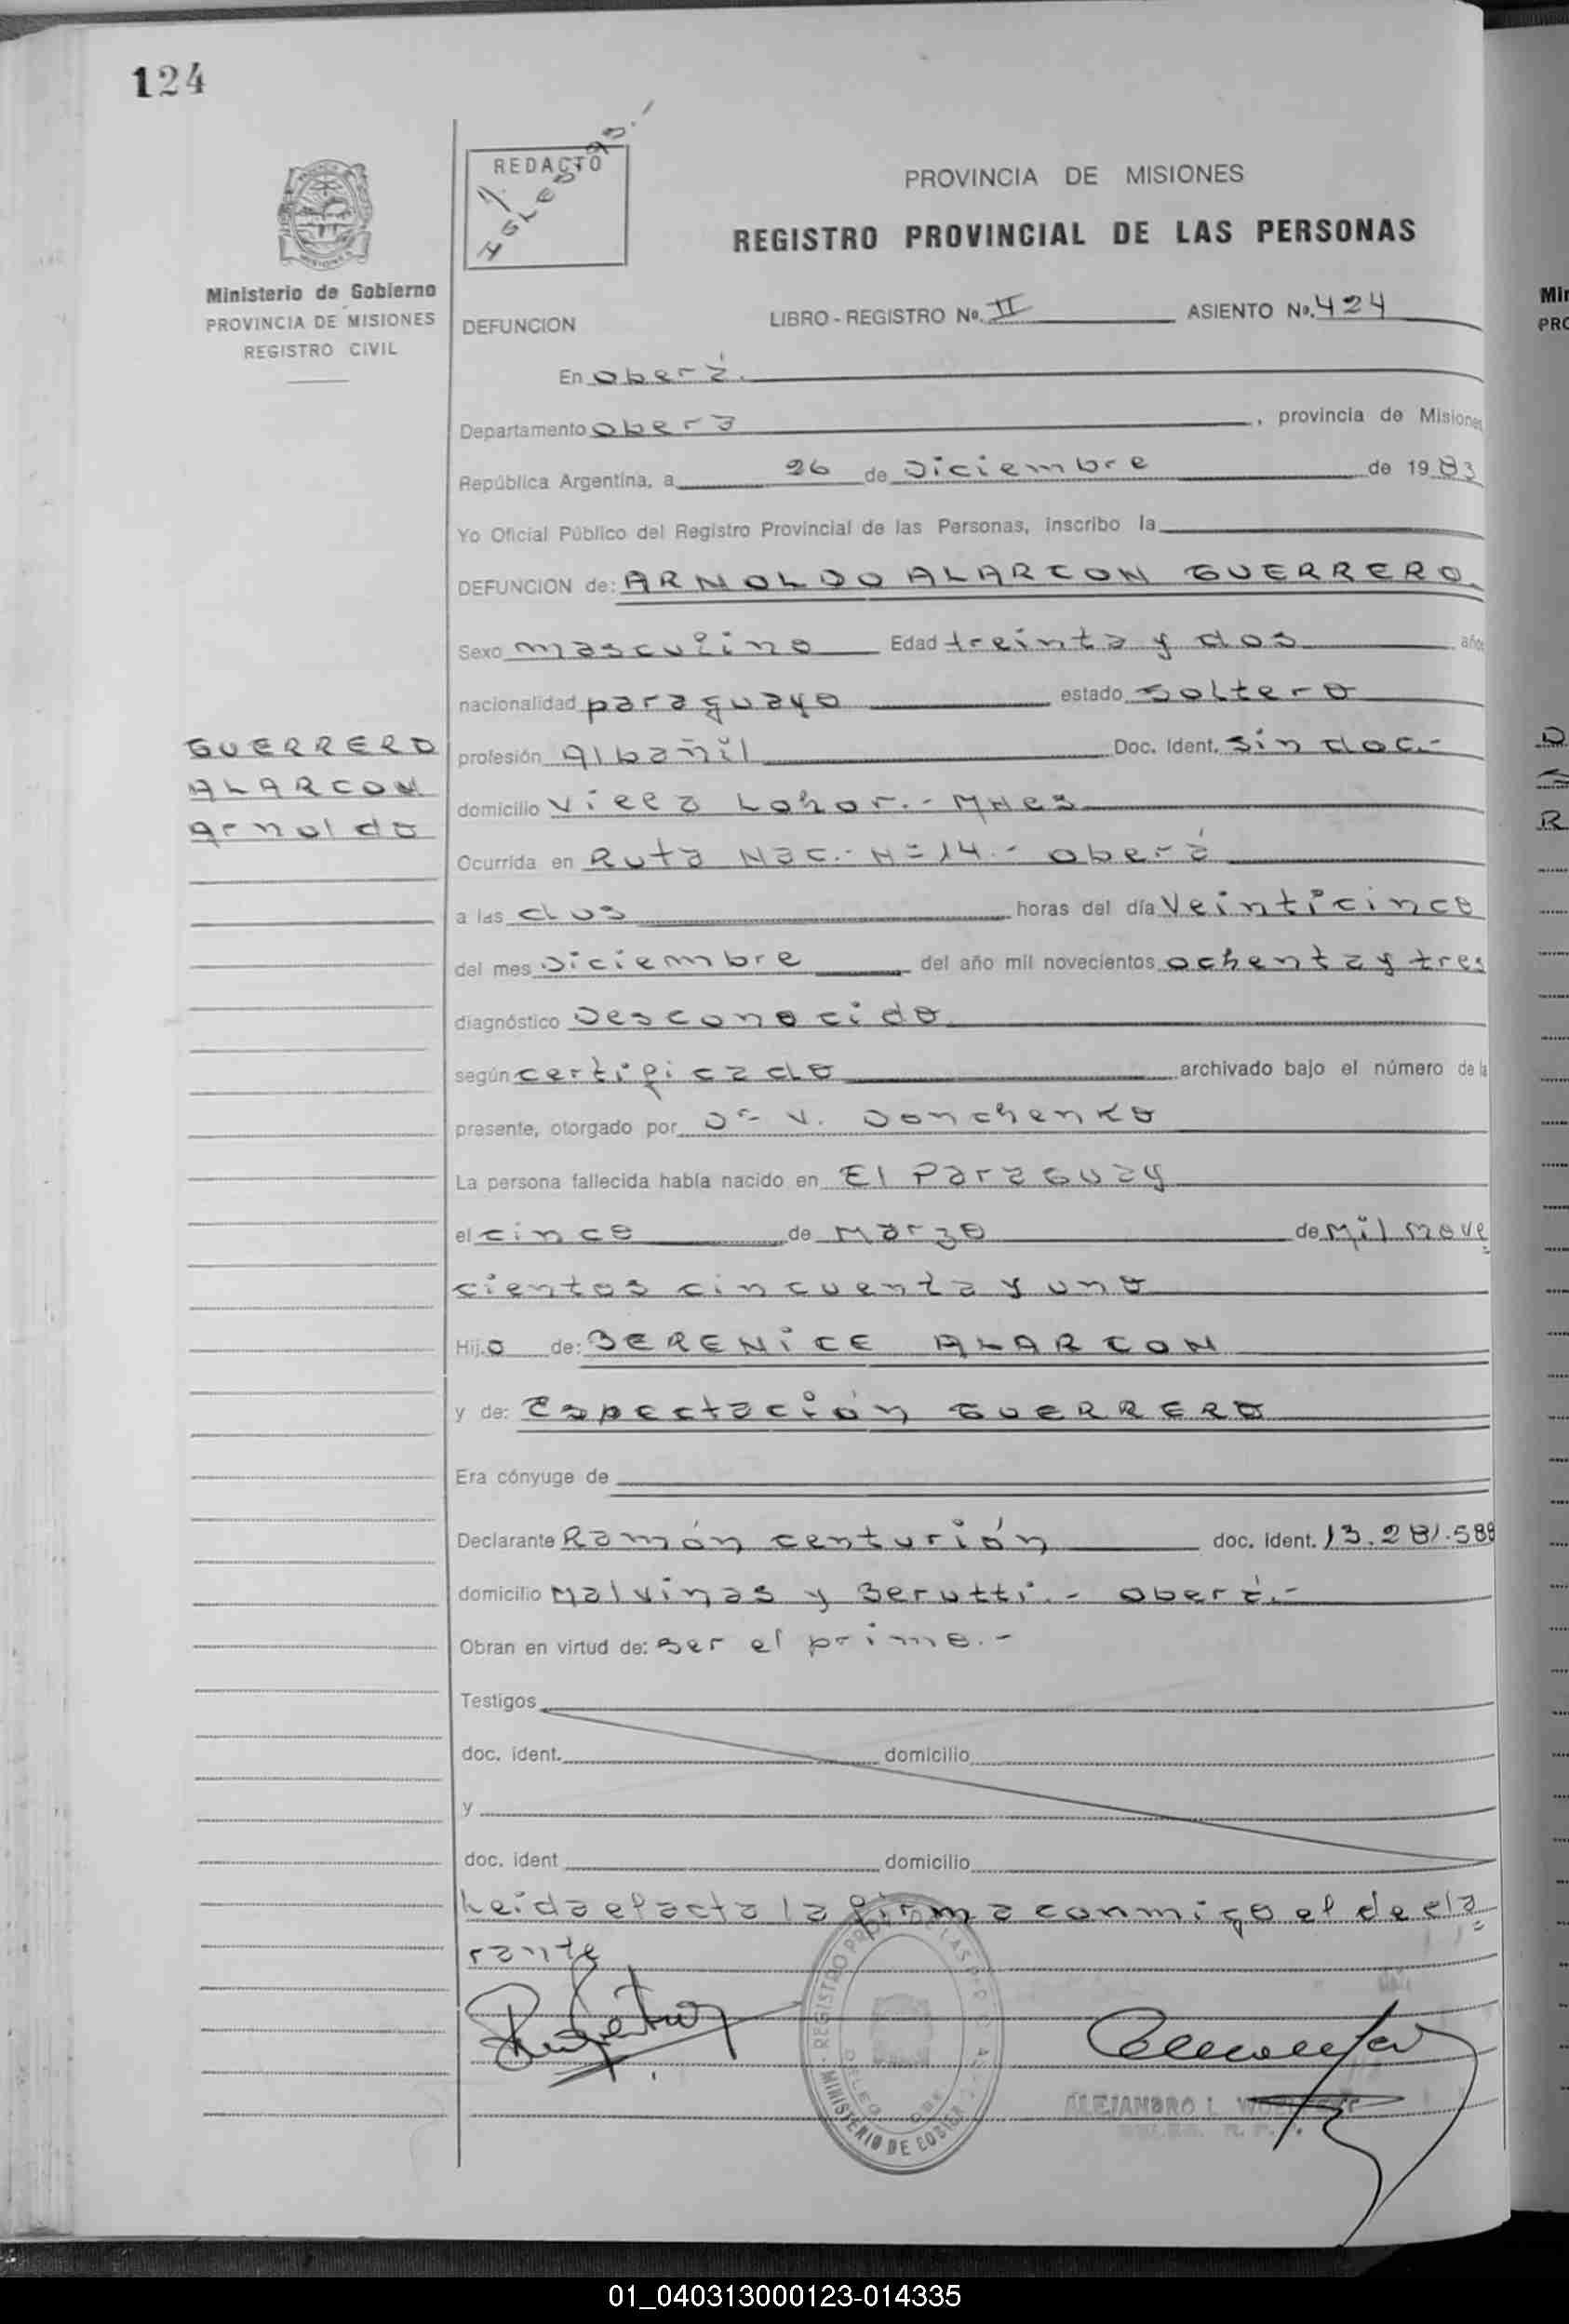 124
REDACTO
Y. IGLESIAS.
PROVINCIA DE MISIONES
REGISTRO PROVINCIAL DE LAS PERSONAS
Ministerio de Gobierno
PROVINCIA DE MISIONES
REGISTRO CIVIL
DEFUNCION LIBRO - REGISTRO No. II ASIENTO No. 424
En Oberá.
Departamento Oberá, provincia de Misiones
República Argentina, a 26 de Diciembre de 1983
Yo Oficial Público del Registro Provincial de las Personas, inscribo la
DEFUNCION de: ARNOLDO ALARCON GUERRERO
Sexo masculino Edad treinta y dos años
nacionalidad paraguayo estado soltero
GUERRERO
ALARCON
Arnoldo
profesión Albañil Doc. Ident. sin doc.-
domicilio Villa .- Mnes
Ocurrida en Ruta Nac.- Nº 14.- Oberá
a las dos horas del día Veinticinco
del mes Diciembre del año mil novecientos ochenta y tres
diagnóstico Desconocido
según certificado archivado bajo el número de la
presente, otorgado por Dr V. Donchenko
La persona fallecida había nacido en El Paraguay
el cinco de Marzo de Mil nove
cientos cincuenta y uno
Hijo de: BERENICE ALARCON
y de: Espectación GUERRERO
Era cónyuge de
Declarante Ramón Centurión doc. ident. 13.281.588
domicilio Malvinas y Berutti.- Oberá.-
Obran en virtud de: ser el primo.-
Testigos
doc. ident. domicilio
y
doc. ident domicilio
Leida el acta la firma conmigo el decla
rante
REGISTRO PROV. DE LAS
MINISTERIO DE GOBIER
ALEJANDRO L.
01_040313000123-014335